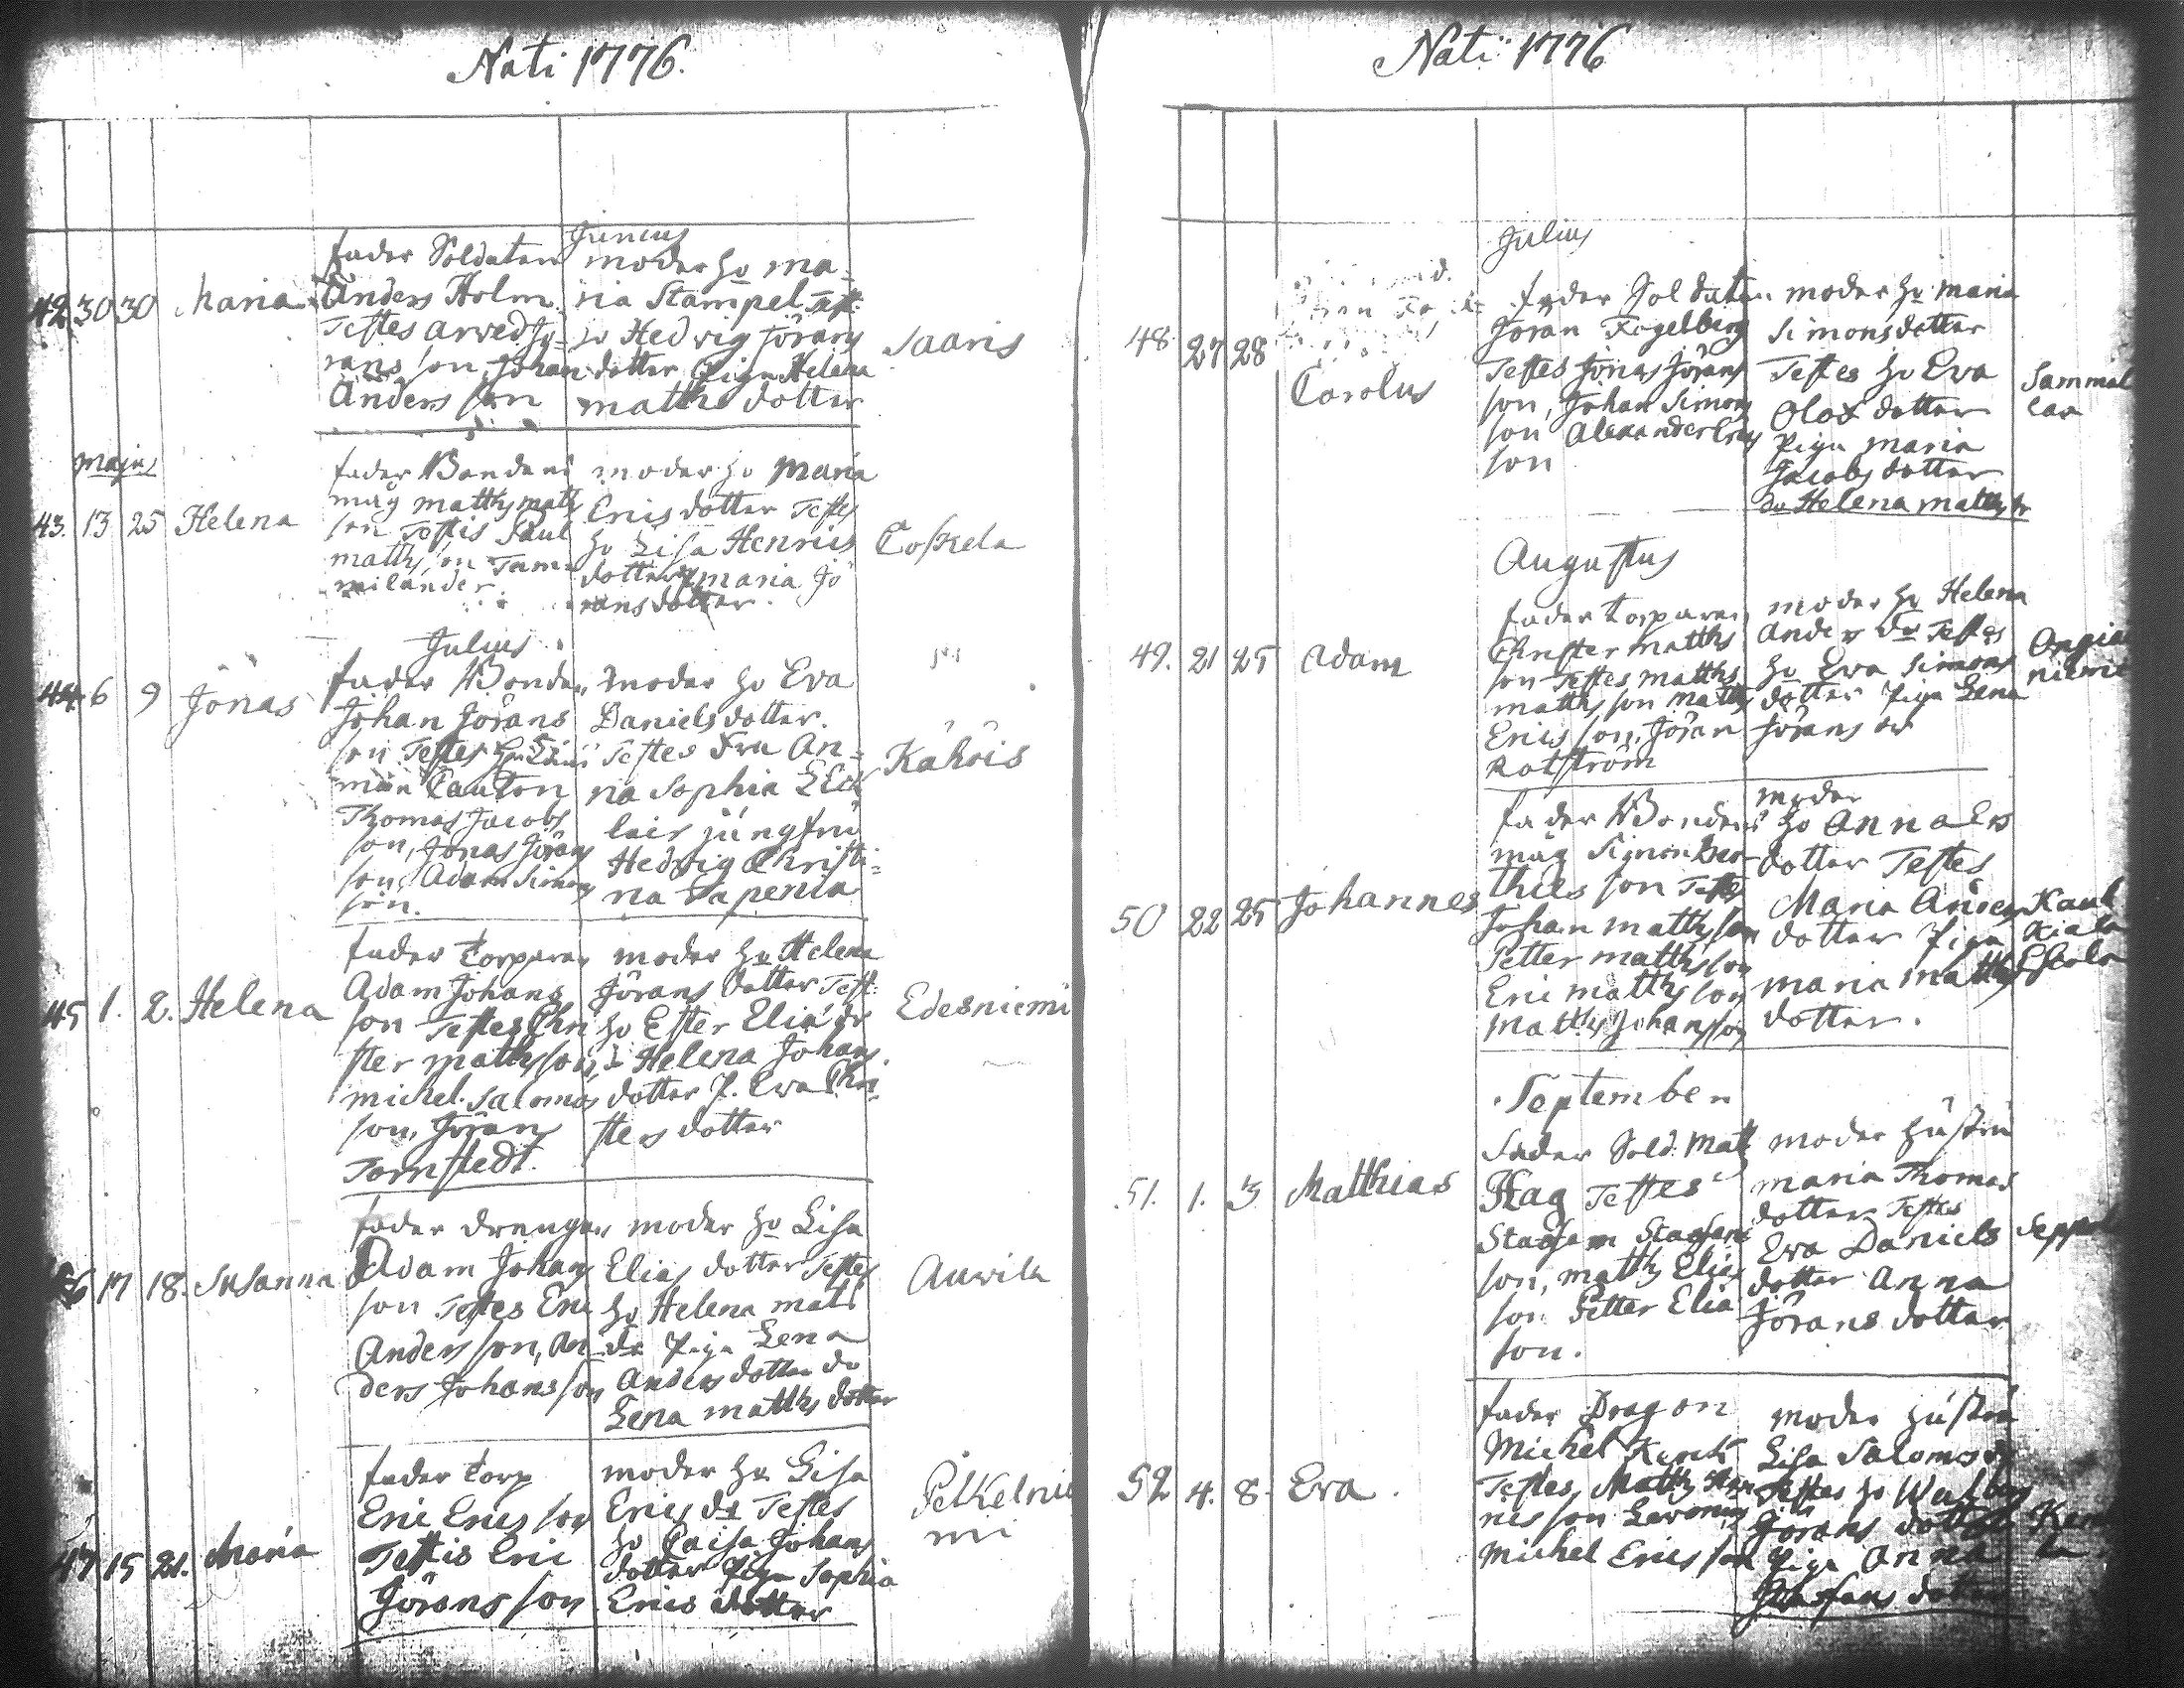 Nati 1776.
Junius
42 30 30 Maria
fader Soldaten
Anders Holm
Testes Arved Jö-
rans son, Johan
Anders son
moder ho Ma-
ria Stampel Test:
ho Hedvig Jörans
dotter Piga Helena
matths dotter
Saaris
majus
43. 13 25 Helena
fader Bondens
måg matths matts
son Testis Paul
matths son Tam-
milander.
moder ho Maria
Erics dotter Testes
ho Lisa Henrics
dotter maria Jö
ransdotter.
Coskela
Julius
44 6 9 Jönas
fader Bonden
Johan Jörans
son Testes
män Canton
Thomas Jacobs
son, Jonas Jörans
son, Adam Simons
son.
moder ho Eva
Daniels dotter.
Testes Fru An-
na Sophia
jungfru
Hedvig Christi-
na
Kähöis
45 1. 2. Helena
fader Torparen
Adam Johans
son Testes Chri
ster matths son,
michel Salomos
son, Jöran
Tornstedt.
moder ho Helena
Jörans dotter Test:
ho Ester Elia dr
Helena Johans
dotter P. Eva Chri-
sters dotter
Edesniemi
46 17 18. Susanna
fader drengen
Adam Johans
son Testes Eric
Anders son, An-
ders Johans son
moder ho Lisa
Elias dotter Testes
ho Helena mats
dr Piga Lena
Anders dotter do
Lena matths dotter
Auvila
47 15 21. Maria
fader Torp
Eric Erics son
Testis Eric
Jörans son
moder ho Lisa
Erics dr Testes
ho Caisa Johans
dotter Piga Sophia
Erics dotter
Pelkelnie
mi
Nati 1776
Julius
48 27 28
Carolus
fader Soldaten
Jöran Fogelberg
Testes Jonas Jörans
son, Johan Simons
son Alexander Erics
son
moder ho Maria
Simonsdotter
Testes ho Eva
Olofs dotter
Piga maria
Jacobs dotter
do Helena matths dr
Sammal
Augustus
49. 21 25 Adam
fader Torparen
Christer matths
son Testes matths
matths son matths
Erics son, Jöran
Rotström
moder ho Helena
Anders dr Testes
ho Eva Simons
dotter Piga Lena
Jörans dr
niemi
50 22 25 Johannes
fader Bondens
måg Simon Ber-
thils son Testes
Johan matths son
Petter matths son
Eric matths son
matths Johans son
moder
ho Anna
dotter Testes
Maria Anders
dotter Piga
maria matths
dotter.
September
51. 1. 3 Matthias
fader Sold. Matt
Flag Testes
Staffan Staffans
son, matths Elias
son Petter Elia
son.
moder hustru
maria Thomas
dotter Testes
Eva Daniels
dotter Anna
Jörans dotter
52 4. 8. Eva.
fader Dragon
Michel
Testes, Matths Hen
rics son
Michel Erics son
moder hustru
Lisa Saloms dr
Testes ho
Jörans dotter
Piga Anna
Staffans dotter